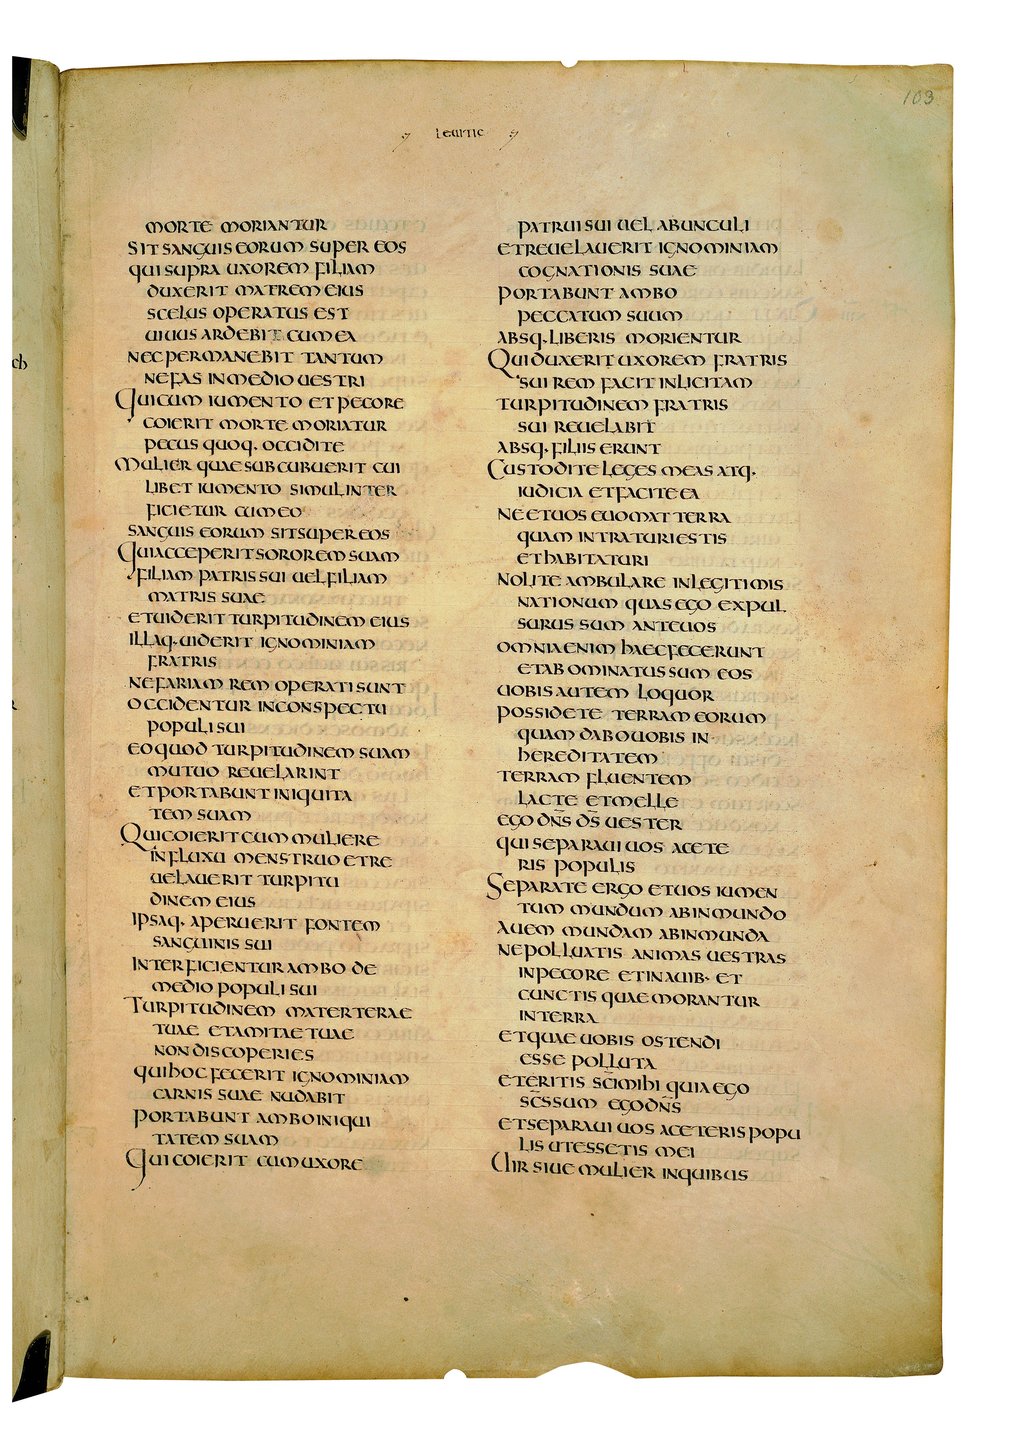 103
leuitic
morte moriantur
sit sanguis eorum super eos
qui supra uxorem filiam
duxerit matrem eius
scelus operatus est
uiuus ardebit cum ea
nec permanebit tantum
nefas in medio uestri
Qui cum iumento et pecore
coierit morte moriatur
pecus quoq· occidite
Mulier quae subcubuerit cui
libet iumento simul inter
ficietur cum eo
sanguis eorum sit super eos
Qui acceperit sororem suam
filiam patris sui uel filiam
matris suae
et uiderit turpitudinem eius
illaq· uiderit ignominiam
fratris
nefariam rem operati sunt
occidentur in conspectu
populi sui
eo quod turpitudinem suam
mutuo reuelarint
et portabunt iniquita
tem suam
Qui coierit cum muliere
in fluxu menstruo et re
uelauerit turpitu
dinem eius
ipsaq· aperuerit fontem
sanguinis sui
interficientur ambo de
medio populi sui
Turpitudinem materterae
tuae et amitae tuae
non discoperies
qui hoc fecerit ignominiam
carnis suae nudabit
portabunt ambo iniqui
tatem suam
Qui coierit cum uxore
patrui sui uel abunculi
et reuelauerit ignominiam
cognationis suae
portabunt ambo
peccatum suum
absq· liberis morientur
Qui duxerit uxorem fratris
sui rem facit inlicitam
turpitudinem fratris
sui reuelabit
absq· filiis erunt
Custodite leges meas atq·
iudicia et facite ea
ne et uos euomat terra
quam intraturi estis
et habitaturi
nolite ambulare in legitimis
nationum quas ego expul
surus sum ante uos
omnia enim haec fecerunt
et abominatus sum eos
uobis autem loquor
possidete terram eorum
quam dabo uobis in
hereditatem
terram fluentem
lacte et melle
ego dn̅s d̅s uester
qui separaui uos a cete
ris populis
Separate ergo et uos iumen
tum mundum ab inmundo
auem mundam ab inmunda
ne polluatis animas uestras
in pecore et in auib· et
cunctis quae morantur
in terra
et quae uobis ostendi
esse polluta
et eritis sc̅i mihi quia ego
sc̅s sum ego dn̅s
et separaui uos a ceteris popu
lis ut essetis mei
Uir siue mulier in quibus